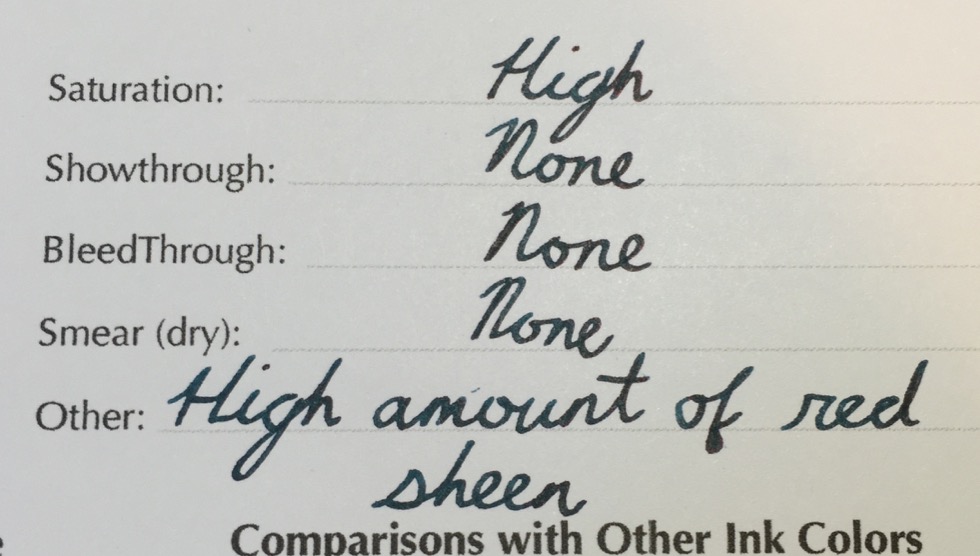 Saturation: High
Showthrough: None
BleedThrough: None
Smear (dry): None
Other: High amount of red
sheen
Comparisons with Other Ink Colors